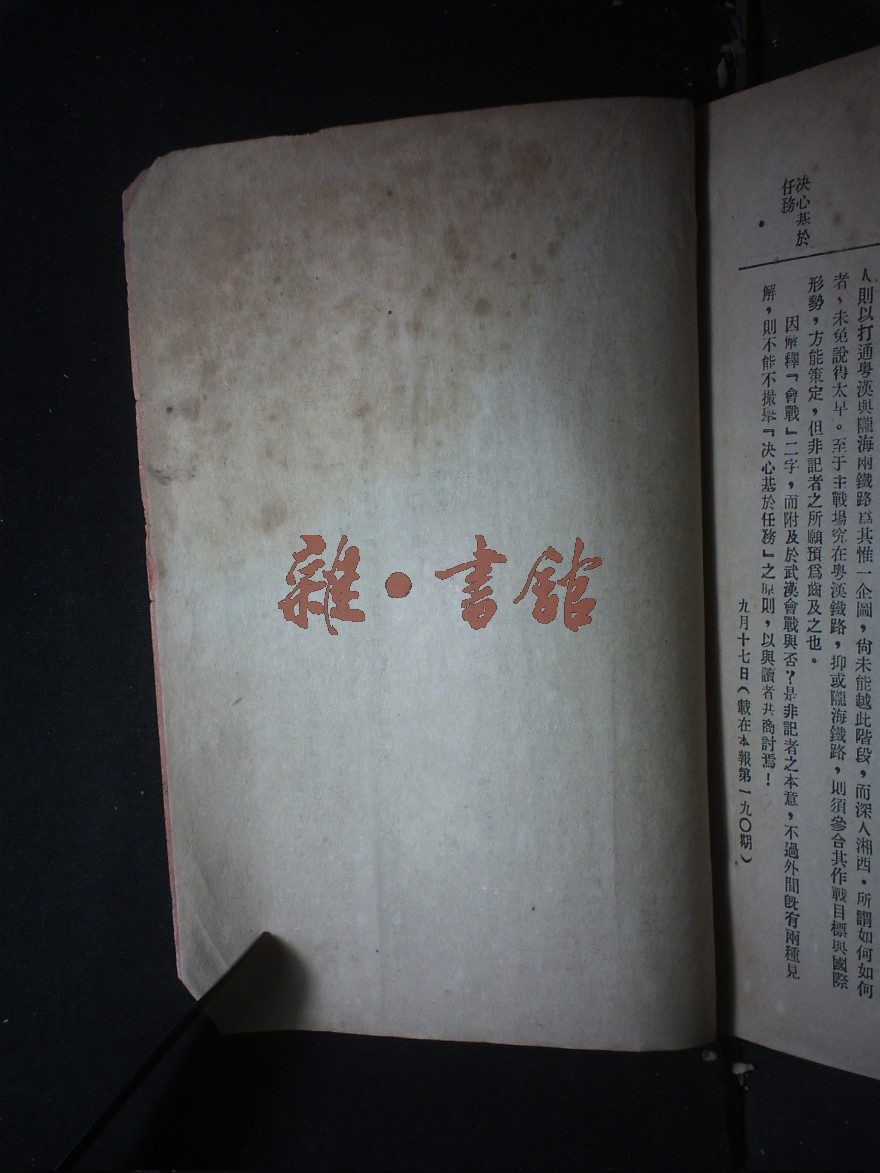 决心基於
任務
人則以打通粤漢與隴海兩鐵路爲其惟一企圖，尙未能越此階段，而深入湘西。所謂如何如何
者，未免說得太早。至于主戰場究在粤漢鐵路，抑或隴海鐵路，則須參合其作戰目標與國際
形勢，方能策定，但非記者之所願預爲齒及之也。
因解釋『會戰』二字，而附及於武漢會戰與否？是非記者之本意，不過外間旣有兩種見
解，則不能不撮舉『决心基於任務』之原則，以與讀者共商討焉！
九月十七日（載在本報第一九〇期）
雜•書館